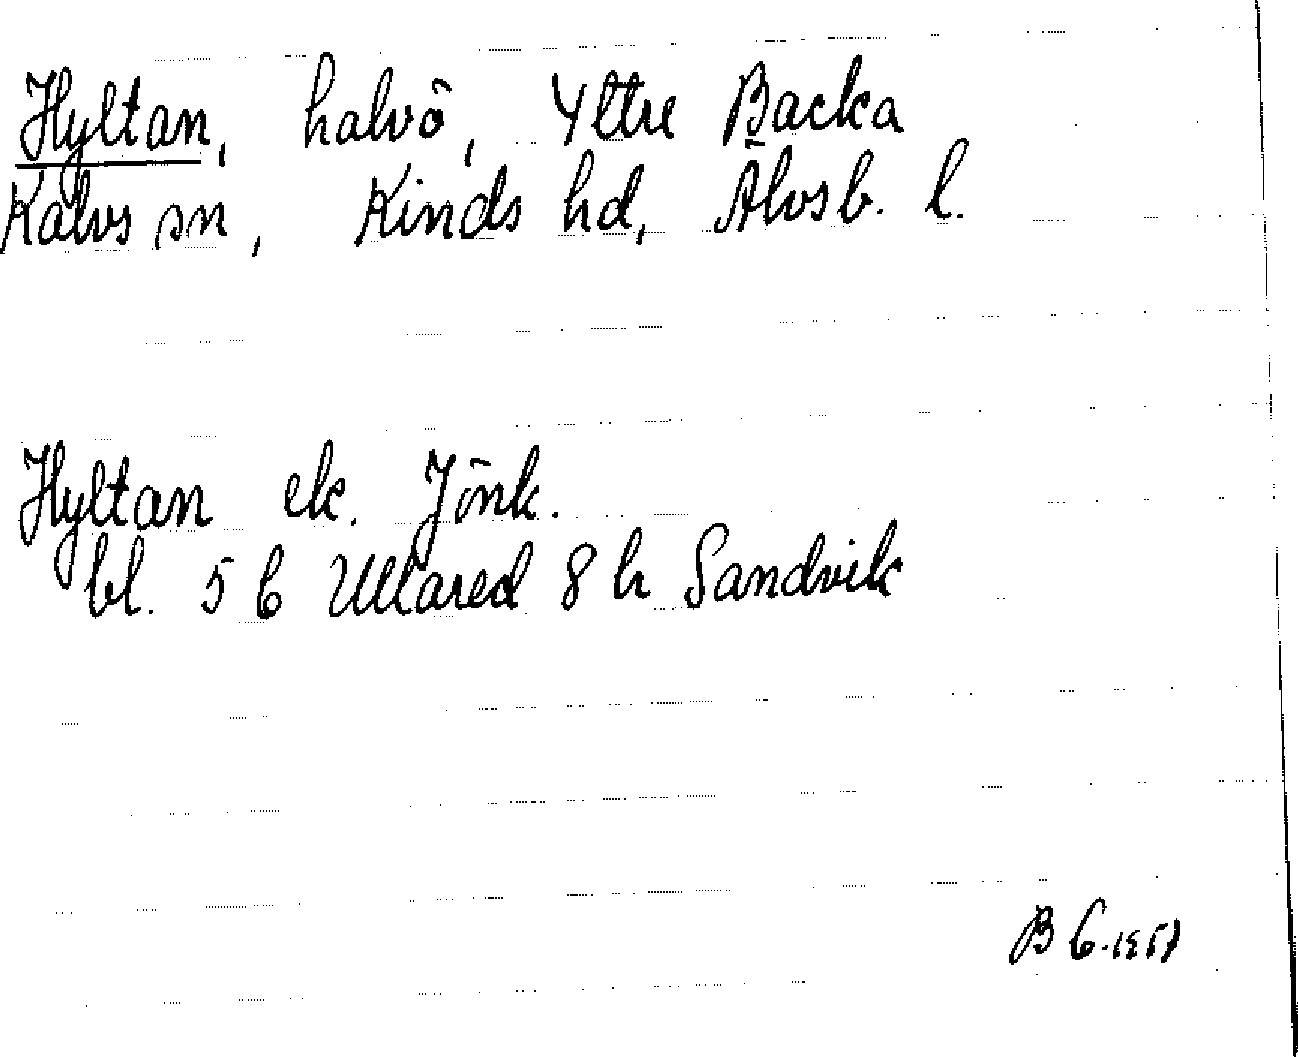 Hyltan, halvö, Yttre Backa
Kalvs sn, Kinds hd, Älvsb. l.
Hyltan ek. Jönk.
bl. 5 C Ullared 8 h Sandvik
B G.